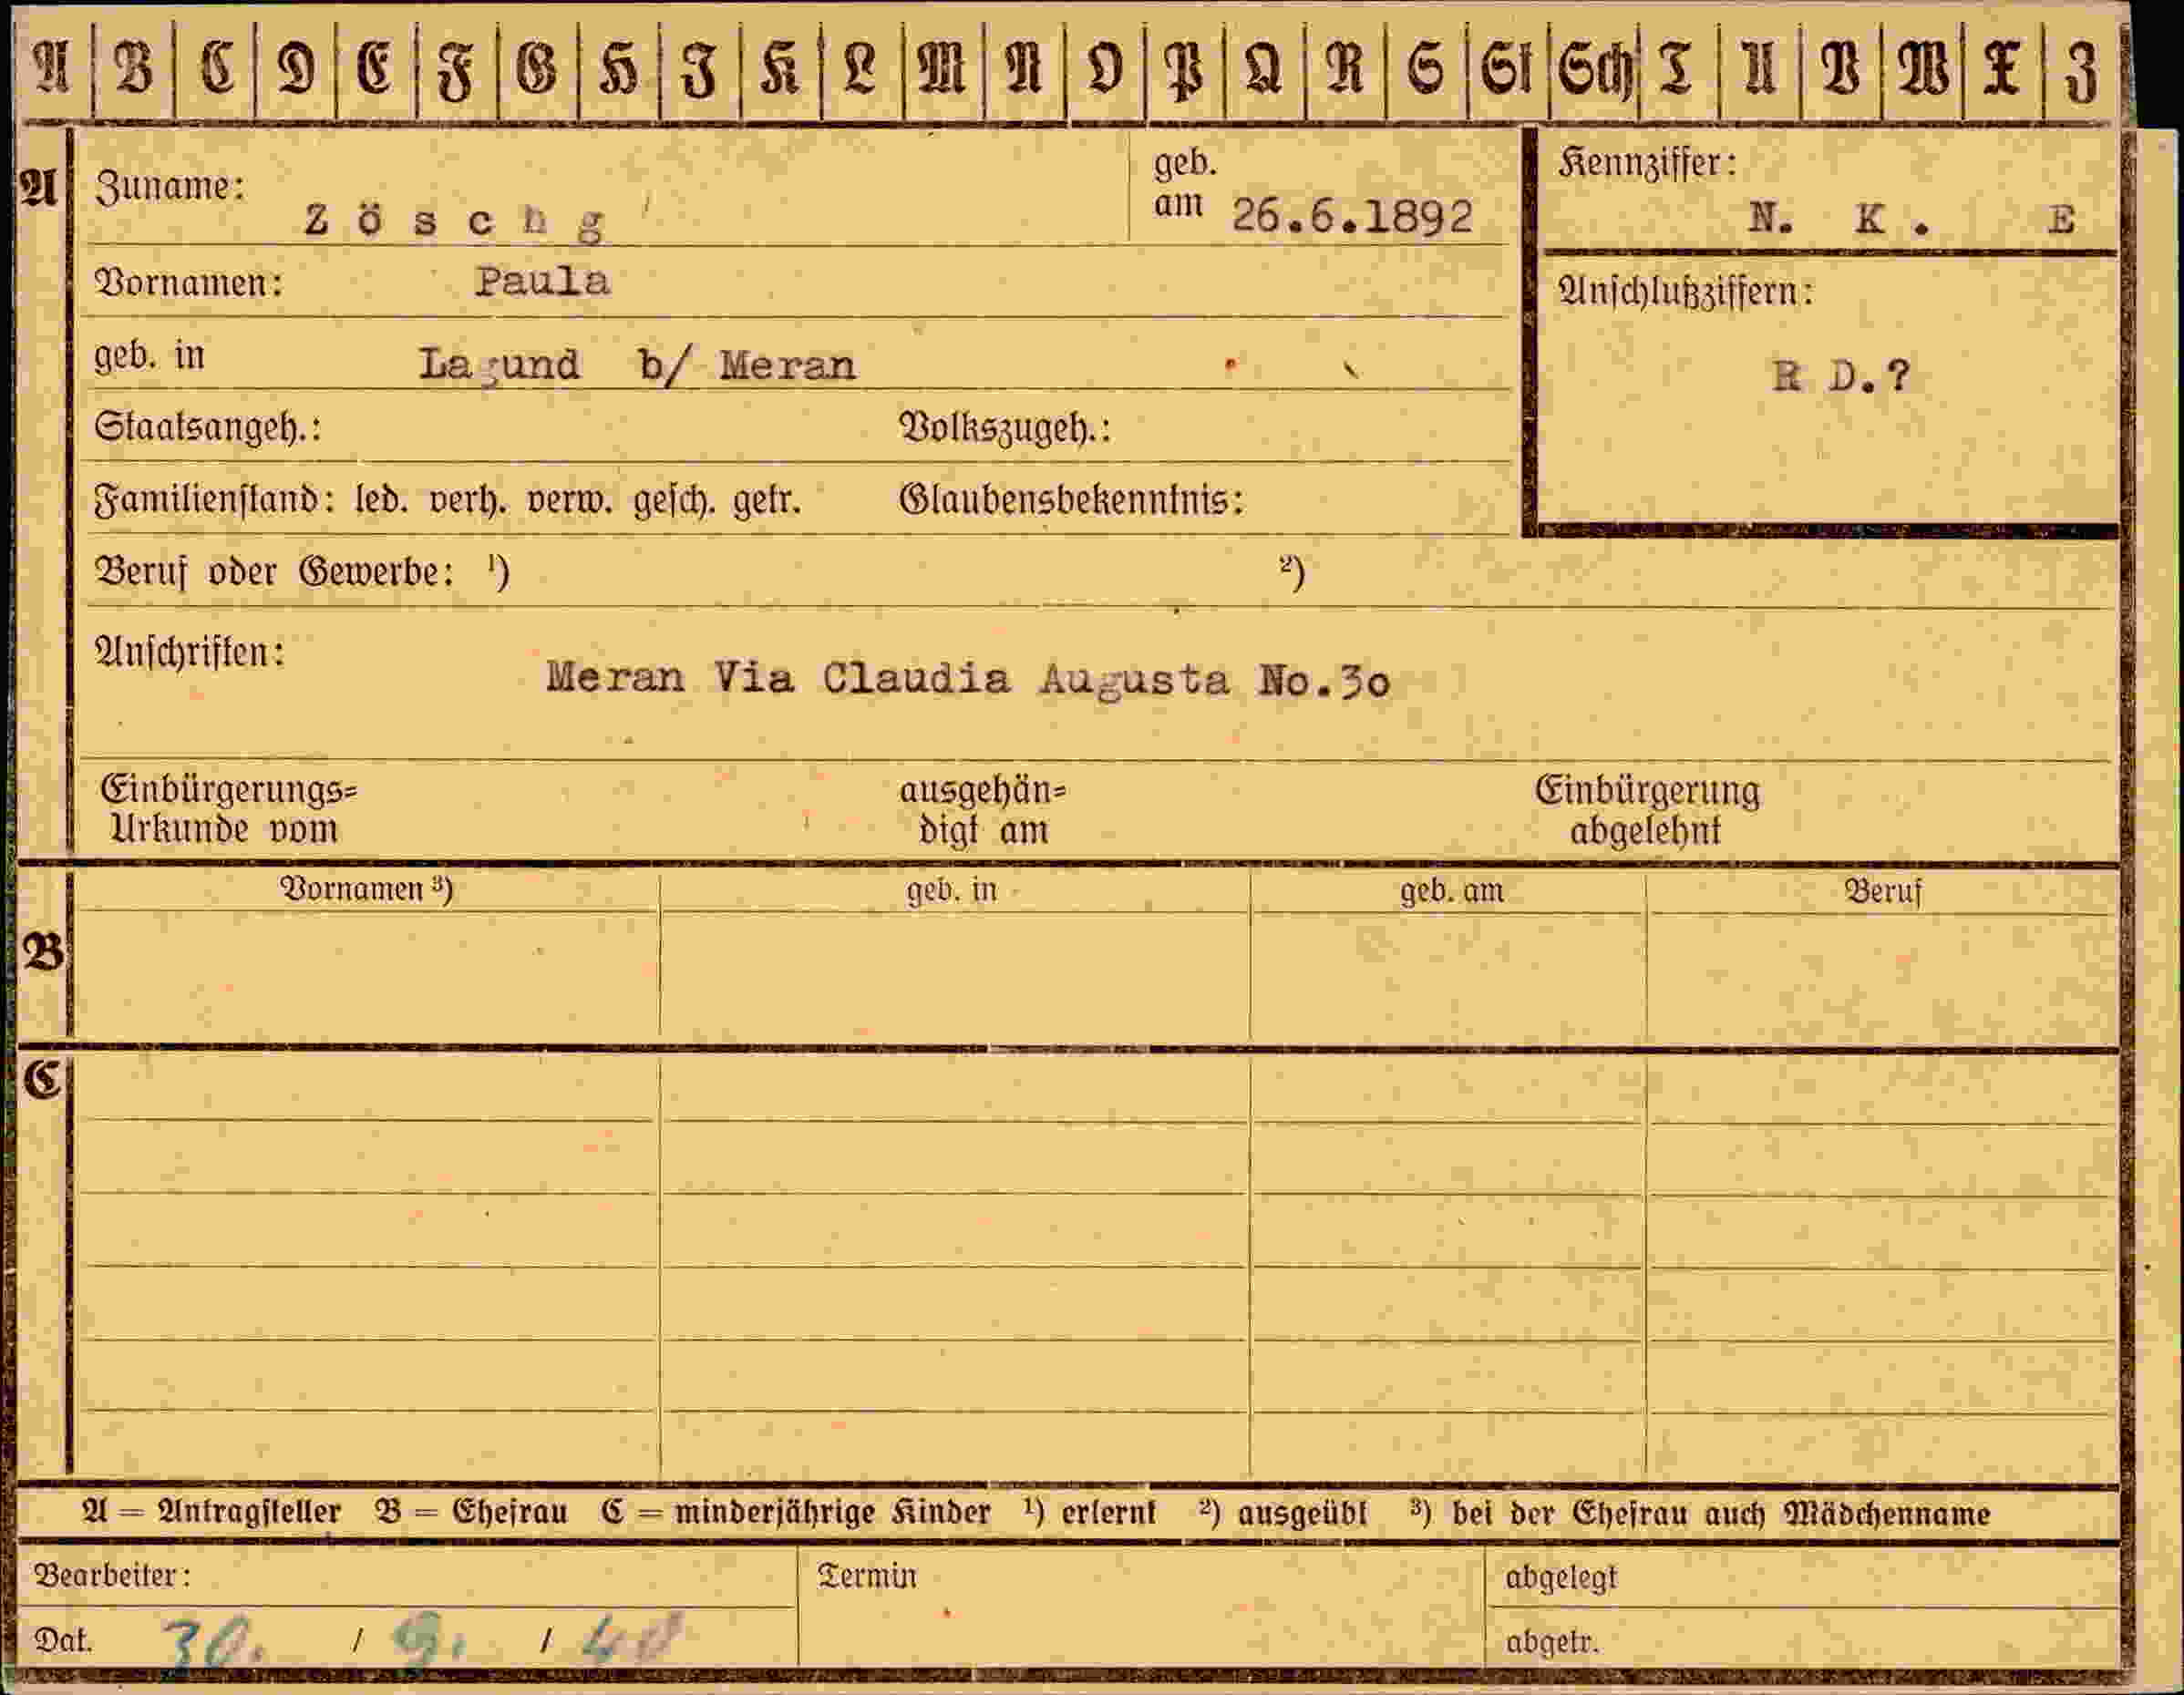 A B C D E F G H I K L M N O P Q R S St Sch T U V W X Z
A Zuname: Zöschg geb. am 26.6.1892 Kennziffer: N. K. E
Vornamen: Paula
Anschlußziffern:
geb. in Lagund b/ Meran
R D.?
Staatsangeh.: Volkszugeh.:
Familienstand: led. verh. verw. gesch. getr. Glaubensbekenntnis:
Beruf oder Gewerbe: ¹) ²)
Anschriften:
Meran Via Claudia Augusta No.3o
Einbürgerungs= ausgehän= Einbürgerung
Urkunde vom digt am abgelehnt
Vornamen ³) geb. in geb. am Beruf
B
C
A = Antragsteller B = Ehefrau C = minderjährige Kinder ¹) erlernt ²) ausgeübt ³) bei der Ehefrau auch Mädchenname
Bearbeiter: Termin abgelegt
Dat. 30. / 9. / 40 abgetr.